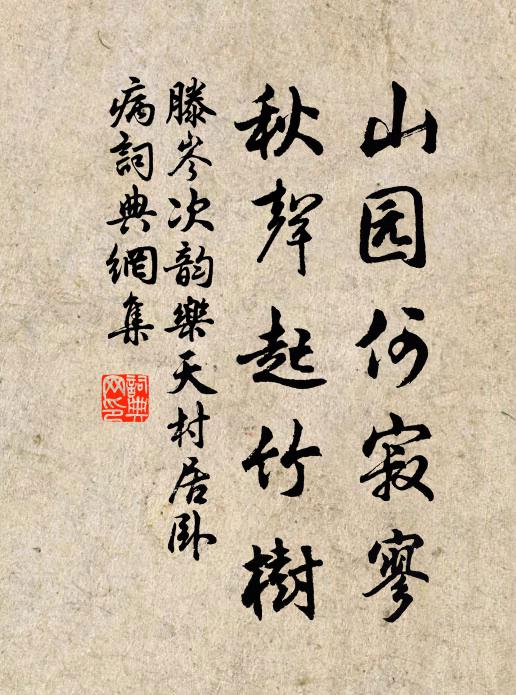 山园何寂寥
秋聲起竹樹
滕岑次韵樂天村居臥
病詞典網集
詞典网印